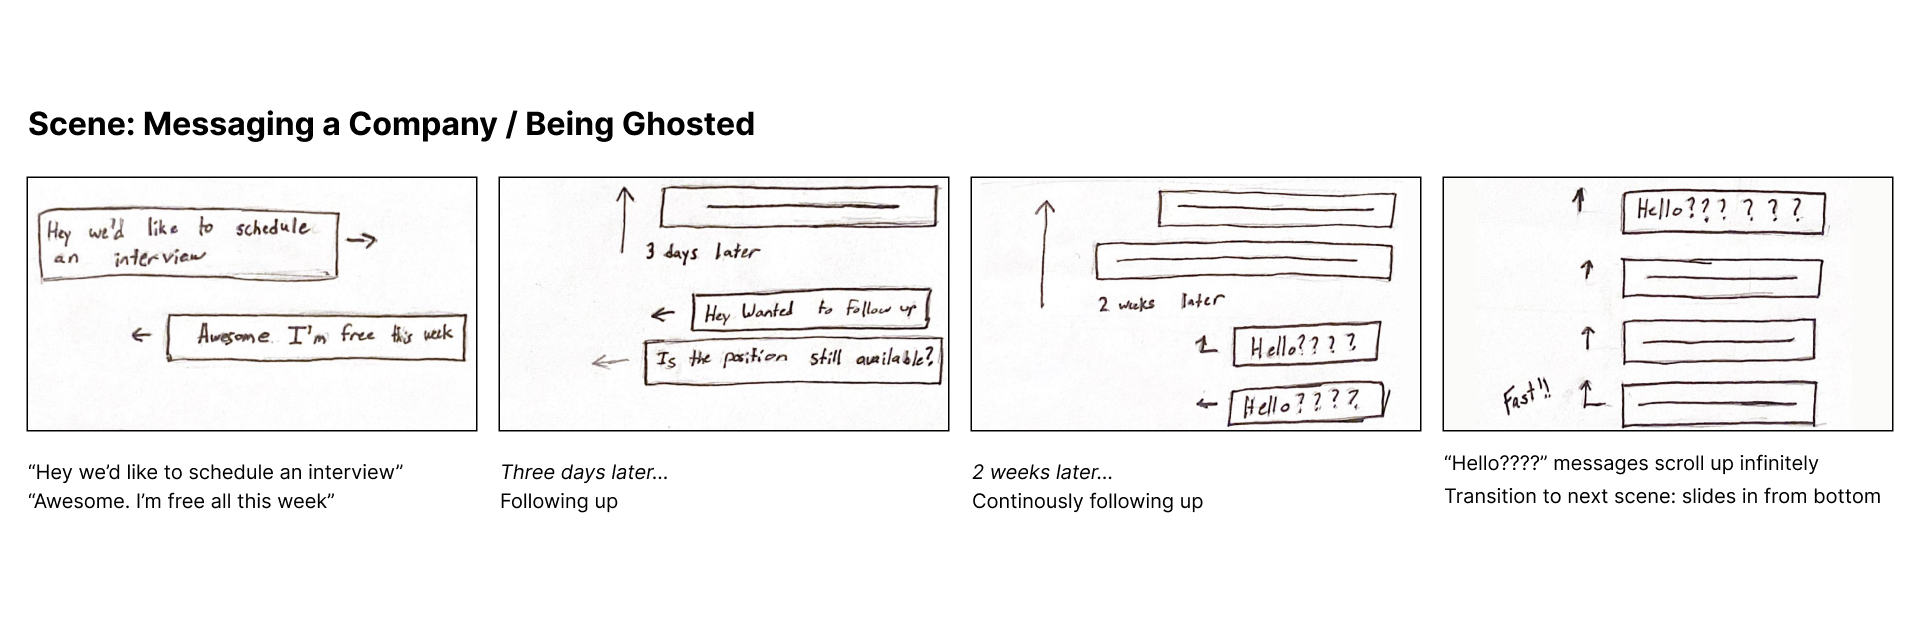 Scene: Messaging a Company / Being Ghosted
Hey we'd like to schedule
an interview
Awesome. I'm free this week
“Hey we’d like to schedule an interview”
“Awesome. I’m free all this week”
3 days later
Hey Wanted to Follow up
Is the position still available?
Three days later...
Following up
2 weeks later
Hello????
Hello????
2 weeks later...
Continously following up
Hello??? ? ? ?
Fast!!
“Hello????” messages scroll up infinitely
Transition to next scene: slides in from bottom